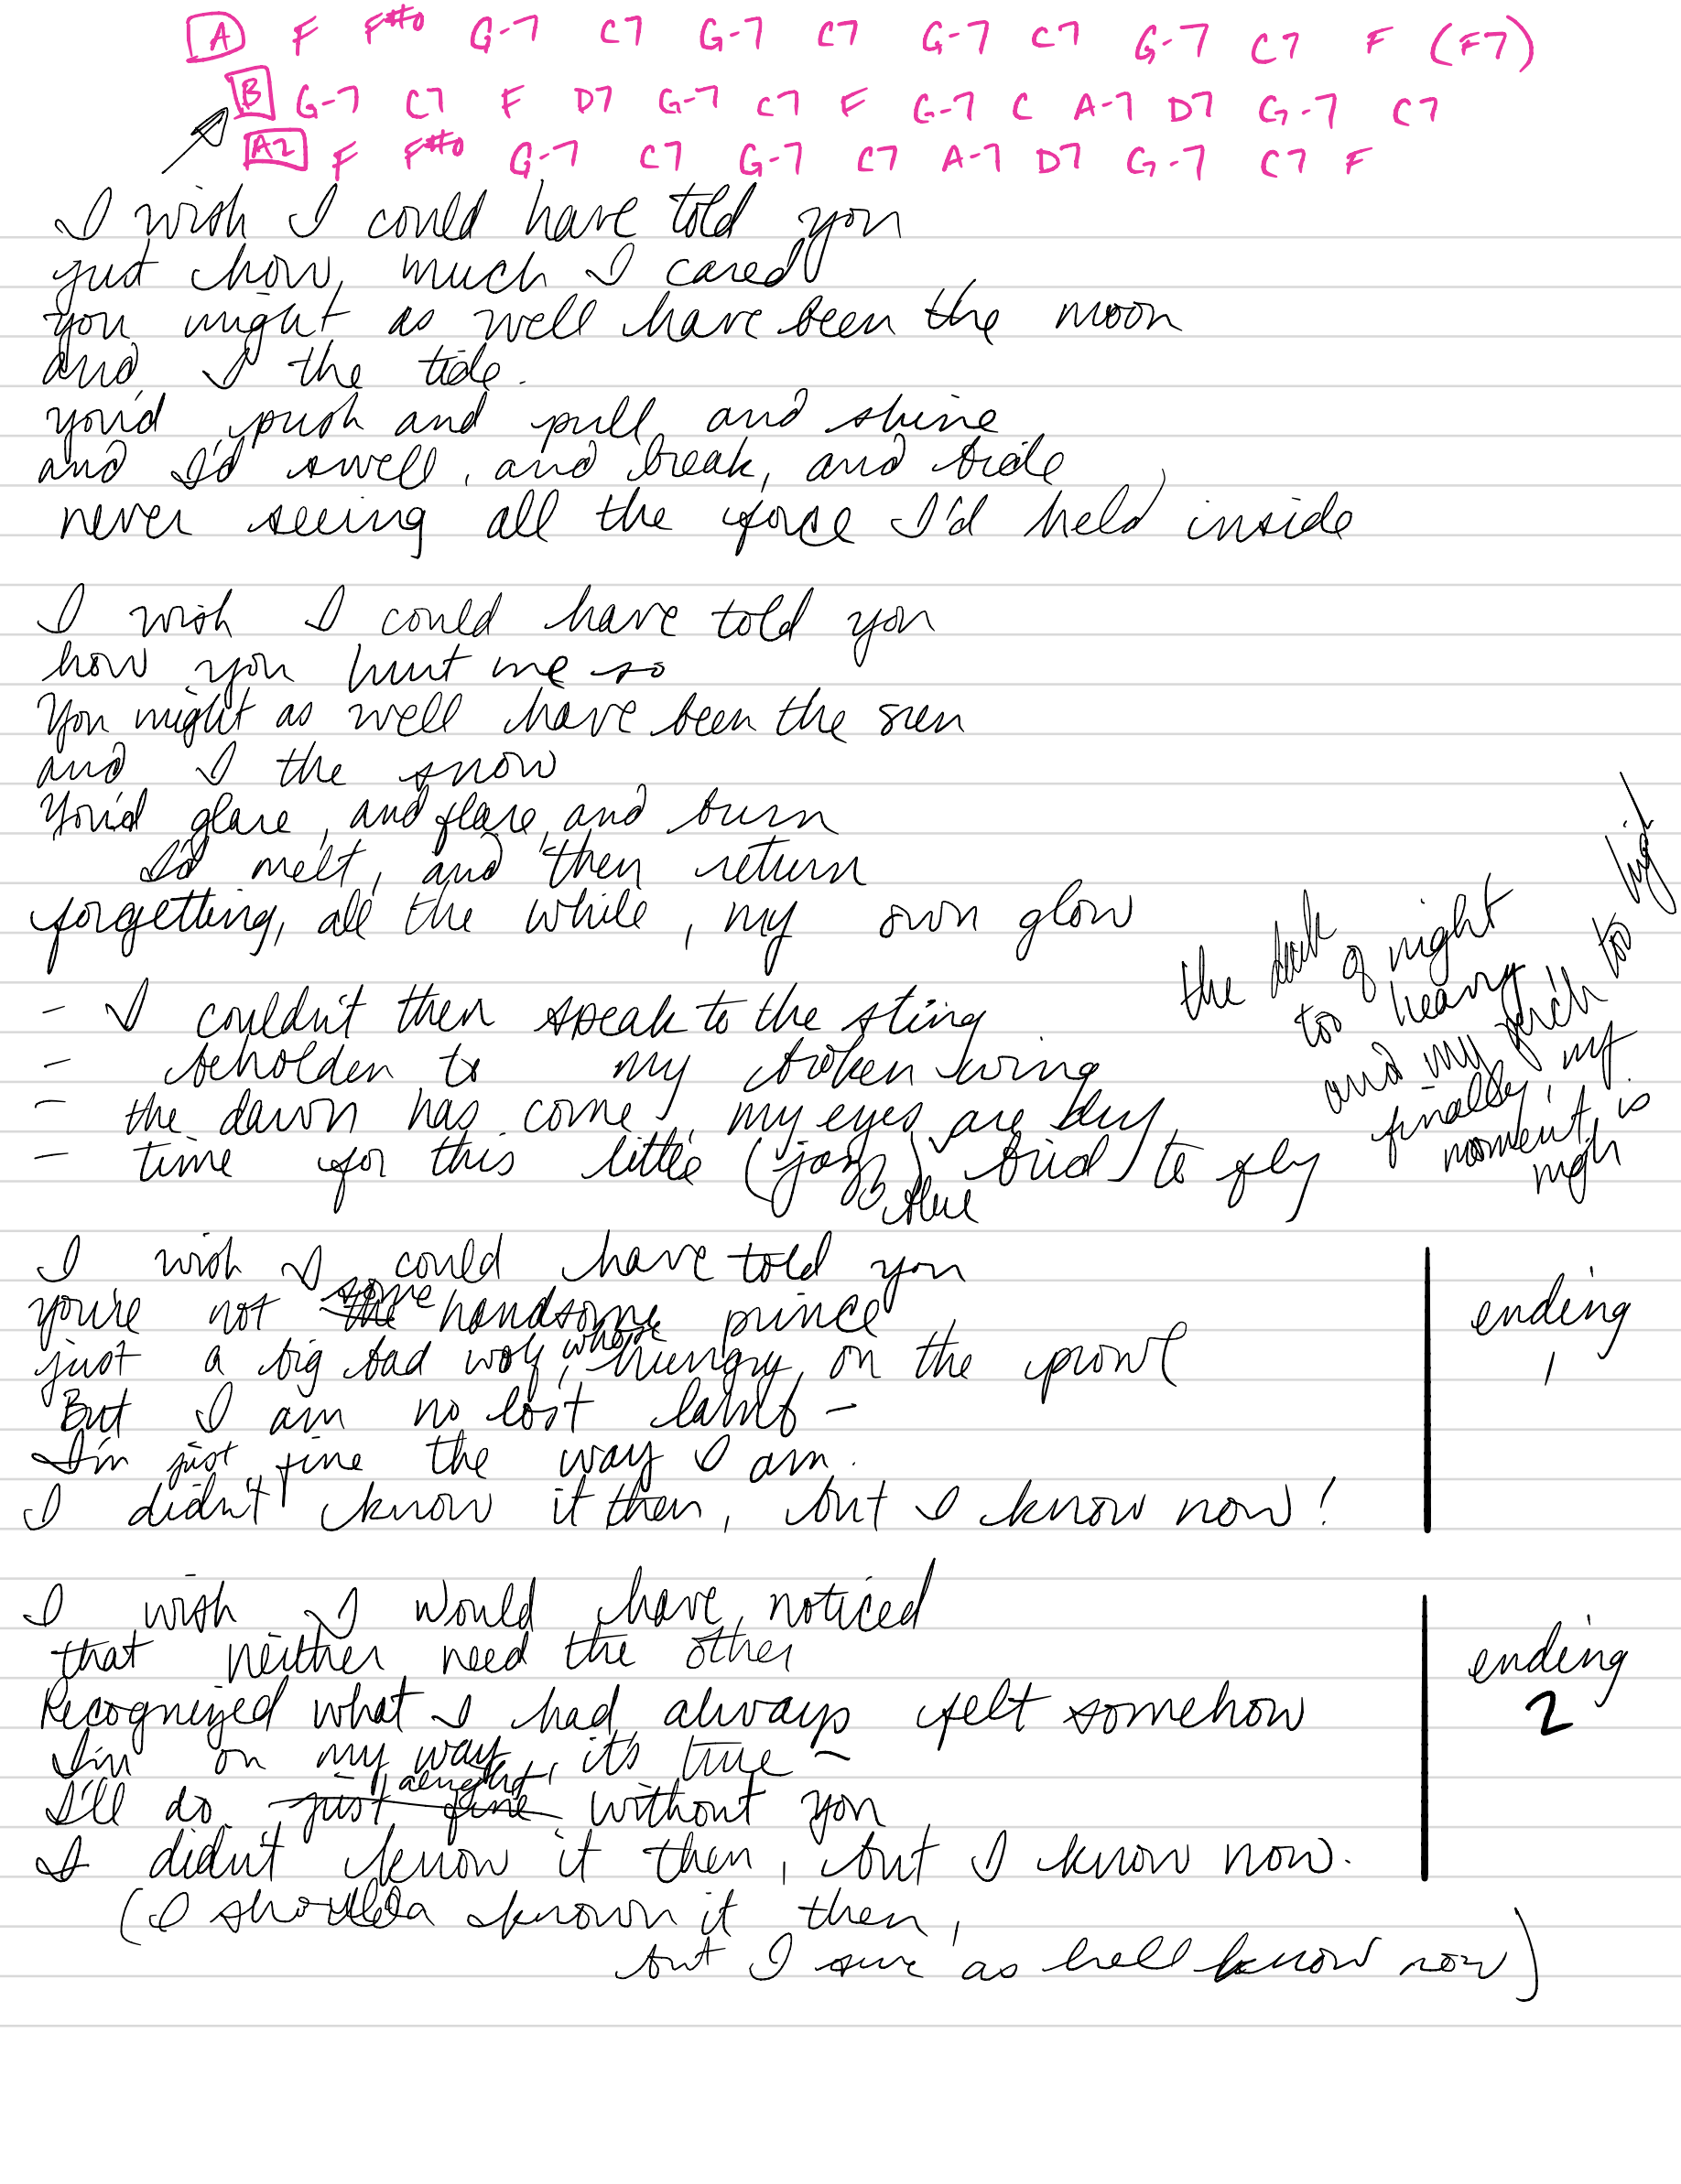 A F F#o G-7 C7 G-7 C7 G-7 C7 G-7 C7 F (F7)
B G-7 C7 F D7 G-7 C7 F G-7 C A-7 D7 G-7 C7
A2 F F#o G-7 C7 G-7 C7 A-7 D7 G-7 C7 F
I wish I could have told you
just how much I cared
you might as well have been the moon
and I the tide.
you'd push and pull and shine
and I'd swell, and break, and bide
never seeing all the force I'd held inside
I wish I could have told you
how you hurt me so
You might as well have been the sun
and I the snow
You'd glare, and flare, and burn
I'd melt, and then return
forgetting, all the while, my own glow
- I couldn't then speak to the sting
- beholden to my broken wing
- the dawn has come, my eyes are dry,
- time for this little (jazz) bird to fly
blue
the dark of night
too heavy
and my perch too high
finally, my
moment is
nigh
I wish I could have told you
you're not the some handsome prince
just a big bad wolf, whose hungry on the prowl
But I am no lost lamb -
I'm just fine the way I am.
I didn't know it then, but I know now!
ending
1
I wish I would have noticed
that neither need the other
Recognized what I had always felt somehow
I'm on my way, it's true -
I'll do just fine alright without you
I didn't know it then, but I know now.
(I shoulda known it then,
but I sure as hell know now)
ending
2